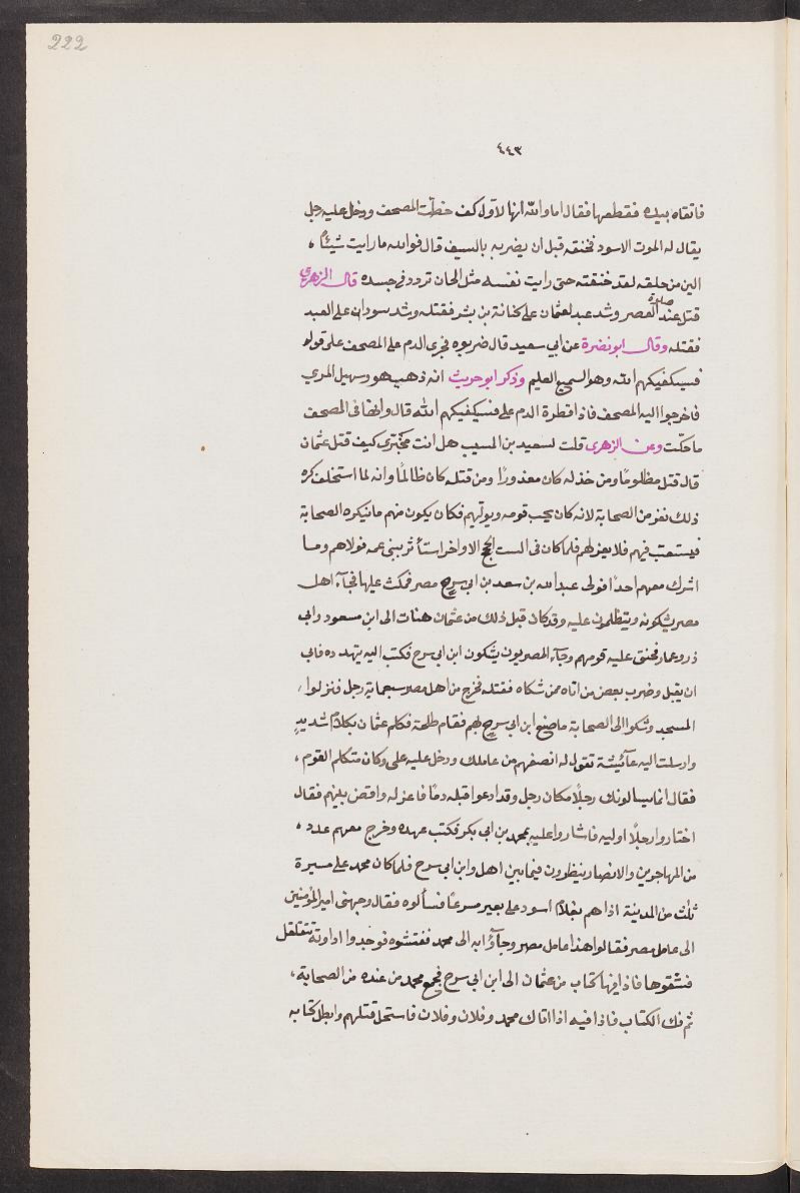 222
٤٤٣
فاتقاه بيده فقطعها فقال اما والله انها لاول كف خطت المصحف ودخل عليه رجل
يقال له الموت الاسود فخنقه قبل ان يضربه بالسيف قال فوالله ما رايت شيئاً
الين من حلقه لقد خنقته حتى رايت نفسه مثل الجان تردد في جسده قال الزهري
قتل عند صلوة العصر وشد عبد لعثمان على كنانة بن بشر فقتله وشد سودان على العبد
فقتله وقال ابو نضرة عن ابي سعيد قال ضربوه فجرى الدم على المصحف على قوله
فسيكفيكهم الله وهو السميع العليم وذكر ابو حريث انه ذهب هو وسهيل المري
فاخرجوا اليه المصحف فاذا قطرة الدم على فسيكفيكهم الله قال وانها في المصحف
ما حكت وعن الزهرى قلت لسعيد بن المسيب هل انت مخبرى كيف قتل عثمان
قال قتل مظلومًا ومن خذله كان معذورًا ومن قتله كان ظالمًا وانه لما استخلف كره
ذلك نفر من الصحابة لانه كان يحب قومه ويوليهم فكان يكون منهم ما ينكره الصحابة
فيستعتب فيهم فلا يعزلهم فلما كان فى الست الحجج الاواخر استأثر ببنى عمه فولاهم وما
اشرك معهم احدًا فولى عبدالله بن سعد بن ابى سرح مصر فمكث عليها فجآء اهل
مصر يشكونه ويتظلمون عليه وقد كان قبل ذلك من عثمان هنات الى ابن مسعود وابى
ذر وعمار فحنق عليه قومهم وجآء المصريون يشكون ابن ابى سرح فكتب اليه يتهدده فابى
ان يقبل وضرب بعض من اتاه ممن شكاه فقتله فخرج من اهل مصر سبعماية رجل فنزلوا
المسجد وشكوا الى الصحابة ما صنع ابن ابى سرح بهم فقام طلحة فكلم عثمان بكلامٍ شديدٍ
وارسلت اليه عآئيشة تقول له انصفهم من عاملك ودخل عليه على وكان متكلم القوم،
فقال انما يسالونك رجلًا مكان رجل وقد ادعوا قبله دمًا فاعزله واقض بينهم فقال
اختاروا رجلًا اوليه فاشاروا عليه بمحمد بن ابى بكر فكتب عهده وخرج معهم عدد،
من المهاجرين والانصار ينظرون فيما بين اهل وابن ابى سرح فلما كان محمد على مسيرة
ثلث من المدينة اذا هم بغلامٍ اسود على بعير مسرعًا فسألوه فقال وجهنى امير المؤمنين
الى عامل مصر فقالوا هذا عامل مصر وجآؤا به الى محمد ففتشوه فوجدوا اداوته تتقلقل
فشقوها فاذا فيها كتاب من عثمان الى ابن ابى سرح فجمع محمد من عنده من الصحابة،
ثم فك الكتاب فاذا فيه اذا اتاك محمد وفلان وفلان فاستحل قتلهم وابطل كتابه